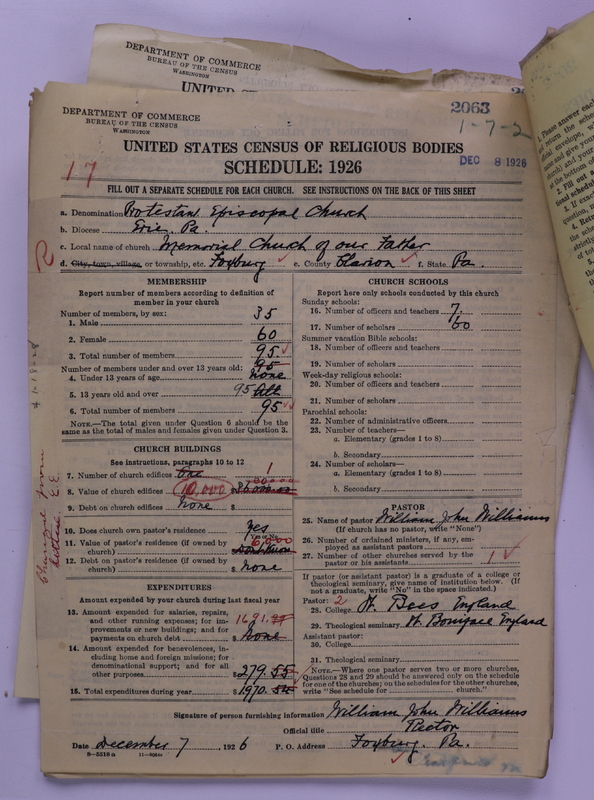 DEPARTMENT OF COMMERCE
BUREAU OF THE CENSUS
WASHINGTON
UNITED STATES
DEPARTMENT OF COMMERCE
BUREAU OF THE CENSUS
WASHINGTON
2063
1-7-2
UNITED STATES CENSUS OF RELIGIOUS BODIES
SCHEDULE: 1926
DEC 8 1926
17
FILL OUT A SEPARATE SCHEDULE FOR EACH CHURCH. SEE INSTRUCTIONS ON THE BACK OF THIS SHEET
a. Denomination Protestant Episcopal Church
b. Diocese Erie, Pa.
c. Local name of church Memorial Church of our Father
R
d. City, town, village, or township, etc. Foxburg e. County Clarion f. State Pa.
MEMBERSHIP
Report number of members according to definition of
member in your church
Number of members, by sex:
1. Male 35
2. Female 60
3. Total number of members 95
Number of members under and over 13 years old:
4. Under 13 years of age None
5. 13 years old and over 95
6. Total number of members 95
NOTE.—The total given under Question 6 should be the
same as the total of males and females given under Question 3.
CHURCH BUILDINGS
See instructions, paragraphs 10 to 12
7. Number of church edifices One 1
8. Value of church edifices 10,000
9. Debt on church edifices None
10. Does church own pastor's residence? Yes
11. Value of pastor's residence (if owned by
church)
12. Debt on pastor's residence (if owned by
church) $ None
EXPENDITURES
Amount expended by your church during last fiscal year
13. Amount expended for salaries, repairs,
and other running expenses; for im-
provements or new buildings; and for
payments on church debt 1691. $ None
14. Amount expended for benevolences, in-
cluding home and foreign missions; for
denominational support; and for all
other purposes $ 279.55
15. Total expenditures during year $ 1970.
CHURCH SCHOOLS
Report here only schools conducted by this church
Sunday schools:
16. Number of officers and teachers 7.
17. Number of scholars 60
Summer vacation Bible schools:
18. Number of officers and teachers
19. Number of scholars
Week-day religious schools:
20. Number of officers and teachers
21. Number of scholars
Parochial schools:
22. Number of administrative officers
23. Number of teachers—
a. Elementary (grades 1 to 8)
b. Secondary
24. Number of scholars—
a. Elementary (grades 1 to 8)
b. Secondary
PASTOR
25. Name of pastor William John Williams
(If church has no pastor, write "None")
26. Number of ordained ministers, if any, em-
ployed as assistant pastors
27. Number of other churches served by the
pastor or his assistants 1
If pastor (or assistant pastor) is a graduate of a college or
theological seminary, give name of institution below. (If
not a graduate, write "No" in the space indicated.)
Pastor: 2
28. College St. Bees England
29. Theological seminary St. Boniface England
Assistant pastor:
30. College
31. Theological seminary
NOTE.—Where one pastor serves two or more churches,
Questions 28 and 29 should be answered only on the schedule
for one of the churches; on the schedules for the other churches,
write "See schedule for church."
Signature of person furnishing information William John Williams
Official title Rector
Date December 7, 1926 P. O. Address Foxburg. Pa.
8-5518 a